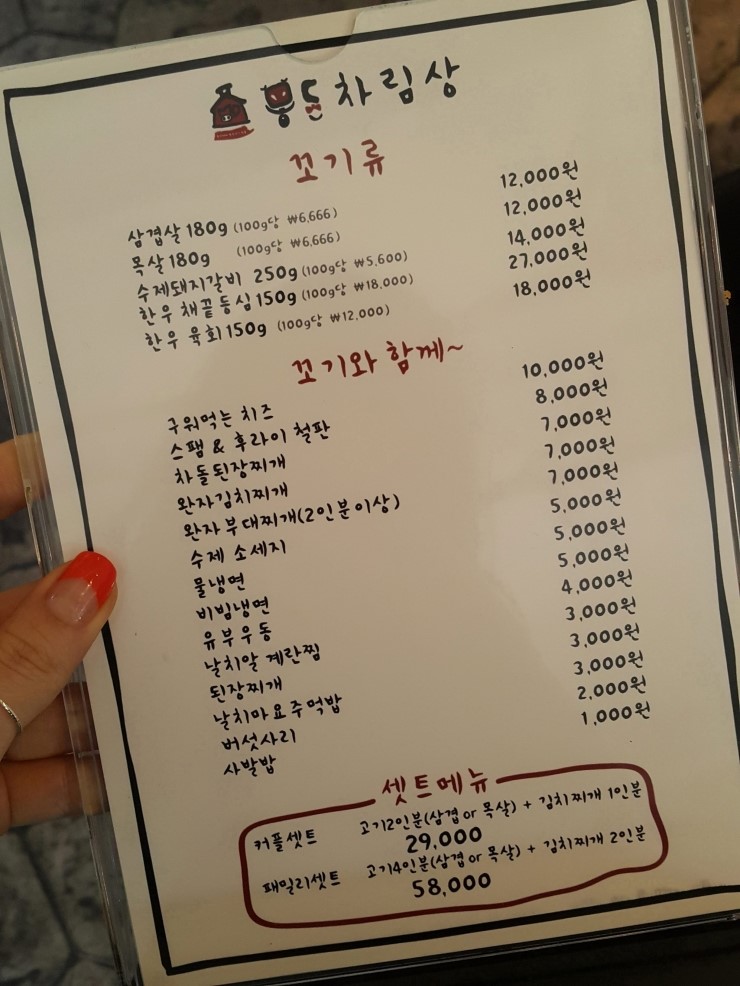 차림상
꼬기류
삼겹살 180g (100g당 ₩6,666) 12,000원
목살 180g (100g당 ₩6,666) 12,000원
수제돼지갈비 250g (100g당 ₩5,600) 14,000원
한우 채끝등심 150g (100g당 ₩18,000) 27,000원
한우 육회 150g (100g당 ₩12,000) 18,000원
꼬기와 함께~
구워먹는 치즈 10,000원
스팸 & 후라이 철판 8,000원
차돌된장찌개 7,000원
완자김치찌개 7,000원
완자부대찌개(2인분이상) 7,000원
수제 소세지 5,000원
물냉면 5,000원
비빔냉면 5,000원
유부우동 4,000원
날치알 계란찜 3,000원
된장찌개 3,000원
날치마요주먹밥 3,000원
버섯사리 2,000원
사발밥 1,000원
셋트메뉴
커플셋트 고기2인분(삼겹 or 목살) + 김치찌개 1인분
29,000
패밀리셋트 고기4인분(삼겹 or 목살) + 김치찌개 2인분
58,000